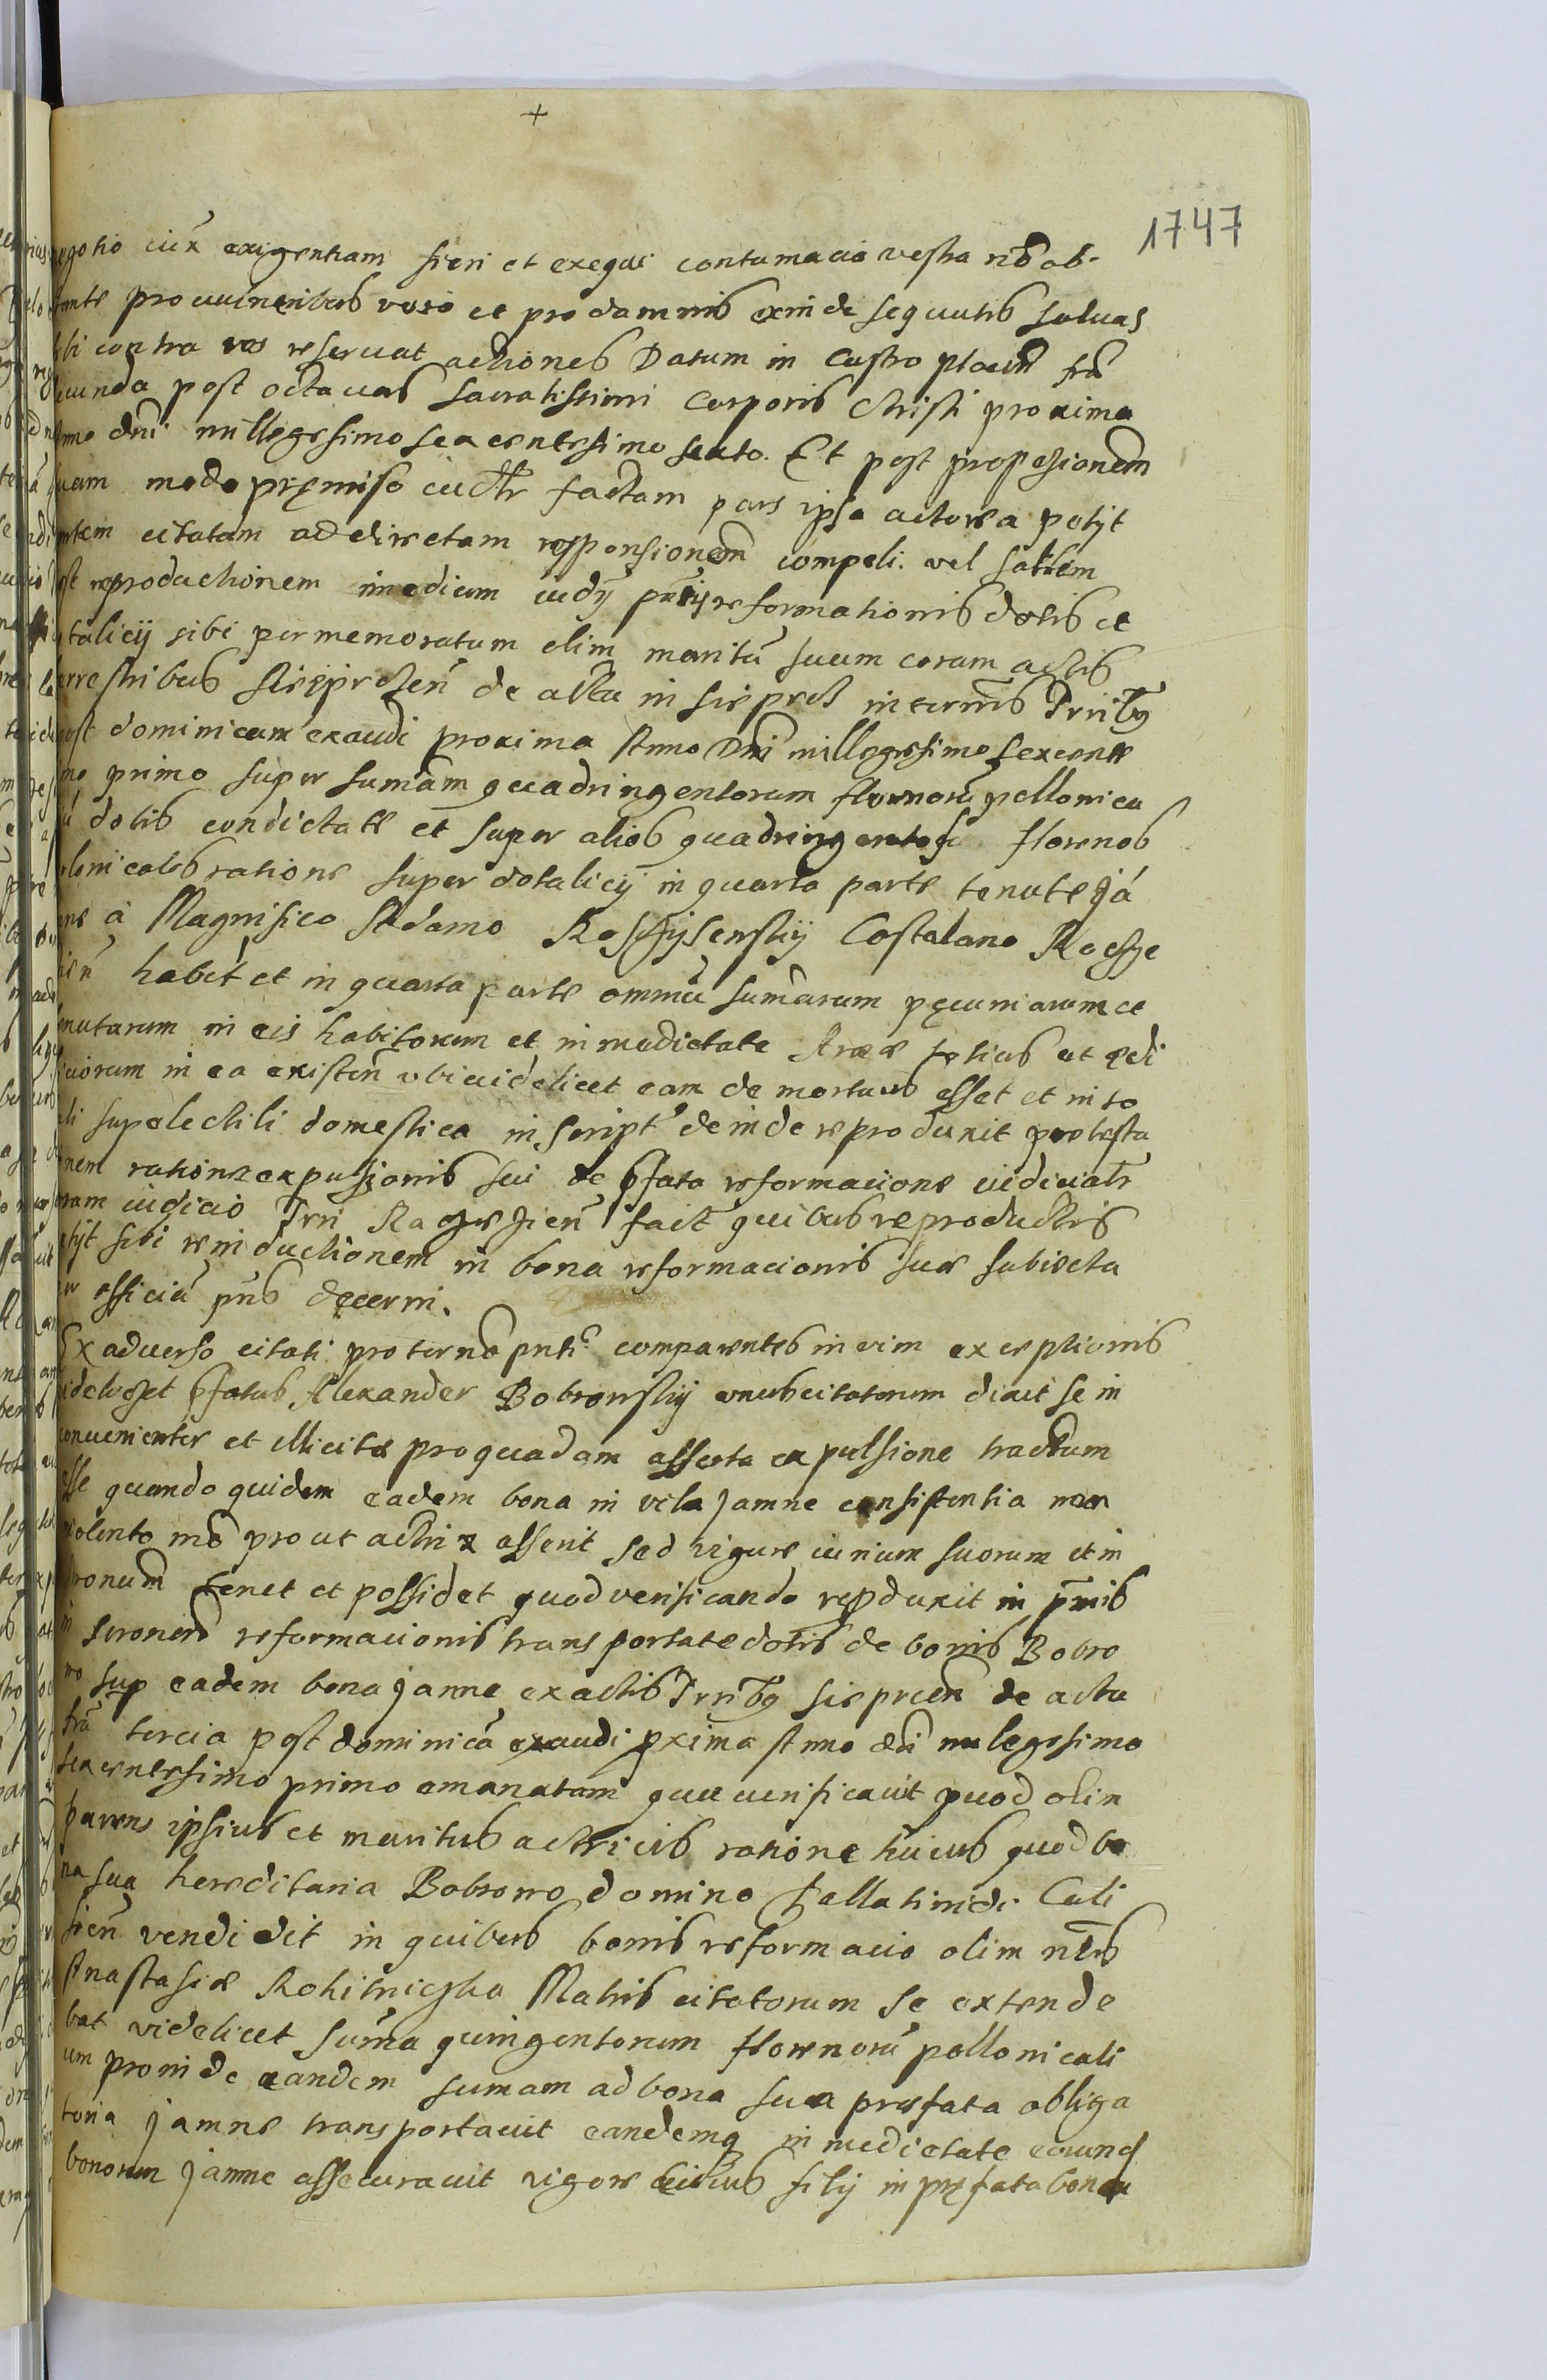 +
1747
negotio iux exigentiam fieri et exequi contumacia vestra nō ob-
stante pro vulneribus vero et pro damnis exinde sequutis saluas
sibi contra vos reseruat actiones Datum in Castro ploceñ fria
secunda post octauas sacratissimi Corporis Christi proxima
Anno dni millegesimo sexcentesimo sexto. Et post proposionem
suam modo pręmiso iudltr factam pars ipsa actorea petijt
partem citatam ad directam responsionem compeli. vel saltem
post reproductionem imedium iudÿ pntis reformationis dotis et
dotalicij sibi per memoratum olim maritū suum coram actis
terrestribus Sieprcen de actu in Sieprcz in terminis Trribg
post dominicam exaudi proxima Anno Dni millegesimo sexcente
mo primo super sumam quadringentorum florenorū pollonica
ū dotis condictate et super alios quadringentos florenos
polonicales ratione super dotalicij in quarta parte tenute Já
mne á Magnifico Adamo Kossijsenskij Castalano Racsze
sień habit et in quarta parte omniū sumarum pęcuniarum ac
tenutarum in eis habitorum et in medietate Areae totius et ędi
ficiorum in ea existen vbi videlicet eam de mortuus esset et in to
ta supelectili domestica inscript deinde reproduxit protesta
onem ratione expulsionis sui de pfata reformacione iudicialr
coram iudicio Trri Raczezień fact quibus reproductis
petijt sibi reinductionem in bona reformacionis sue subiecta
per officiū pns dęcerni.
Ex aduerso citati pro termo pnti comparentes in vim exceptionis
videlicet pfatus Alexander Bobrowskij vnus citatorum dixit se in
conuenienter et illicite pro quadam asserta expulsione tractum
esse quando quidem eadem bona in villa Jamne consistentia non
violento mo prout actrix asserit sed vigore iurium suorum et in
tronum tenet et possidet quod verificando repduxit in pmis
in Seronem reformacionis transportate dotis de bonis Bobro
wo sup eadem bona Jamne ex actis Trribg Sieprcen de actu
fria tercia post dominicā exaudi pxima Anno dni mulegesimo
sexcentesimo primo emanatam qua verificauit quod olim
parens ipsius et maritus actricis ratione huius quod bo
na sua hereditaria Bobrowo domino Pallatinidi Cali
sień vendidit in quibus bonis reformacio olim nobis
Anastasie Rokitniczka Matris citatorum se extende
bat videlicet suma quingentorum florenorū pollonicali
um proinde eandem sumam ad bona sua prefata obliga
toria Jamne transportauit eandemq in medietate eorund
bonorum Jamne assecurauit vigore cuius filij in pręfata bona